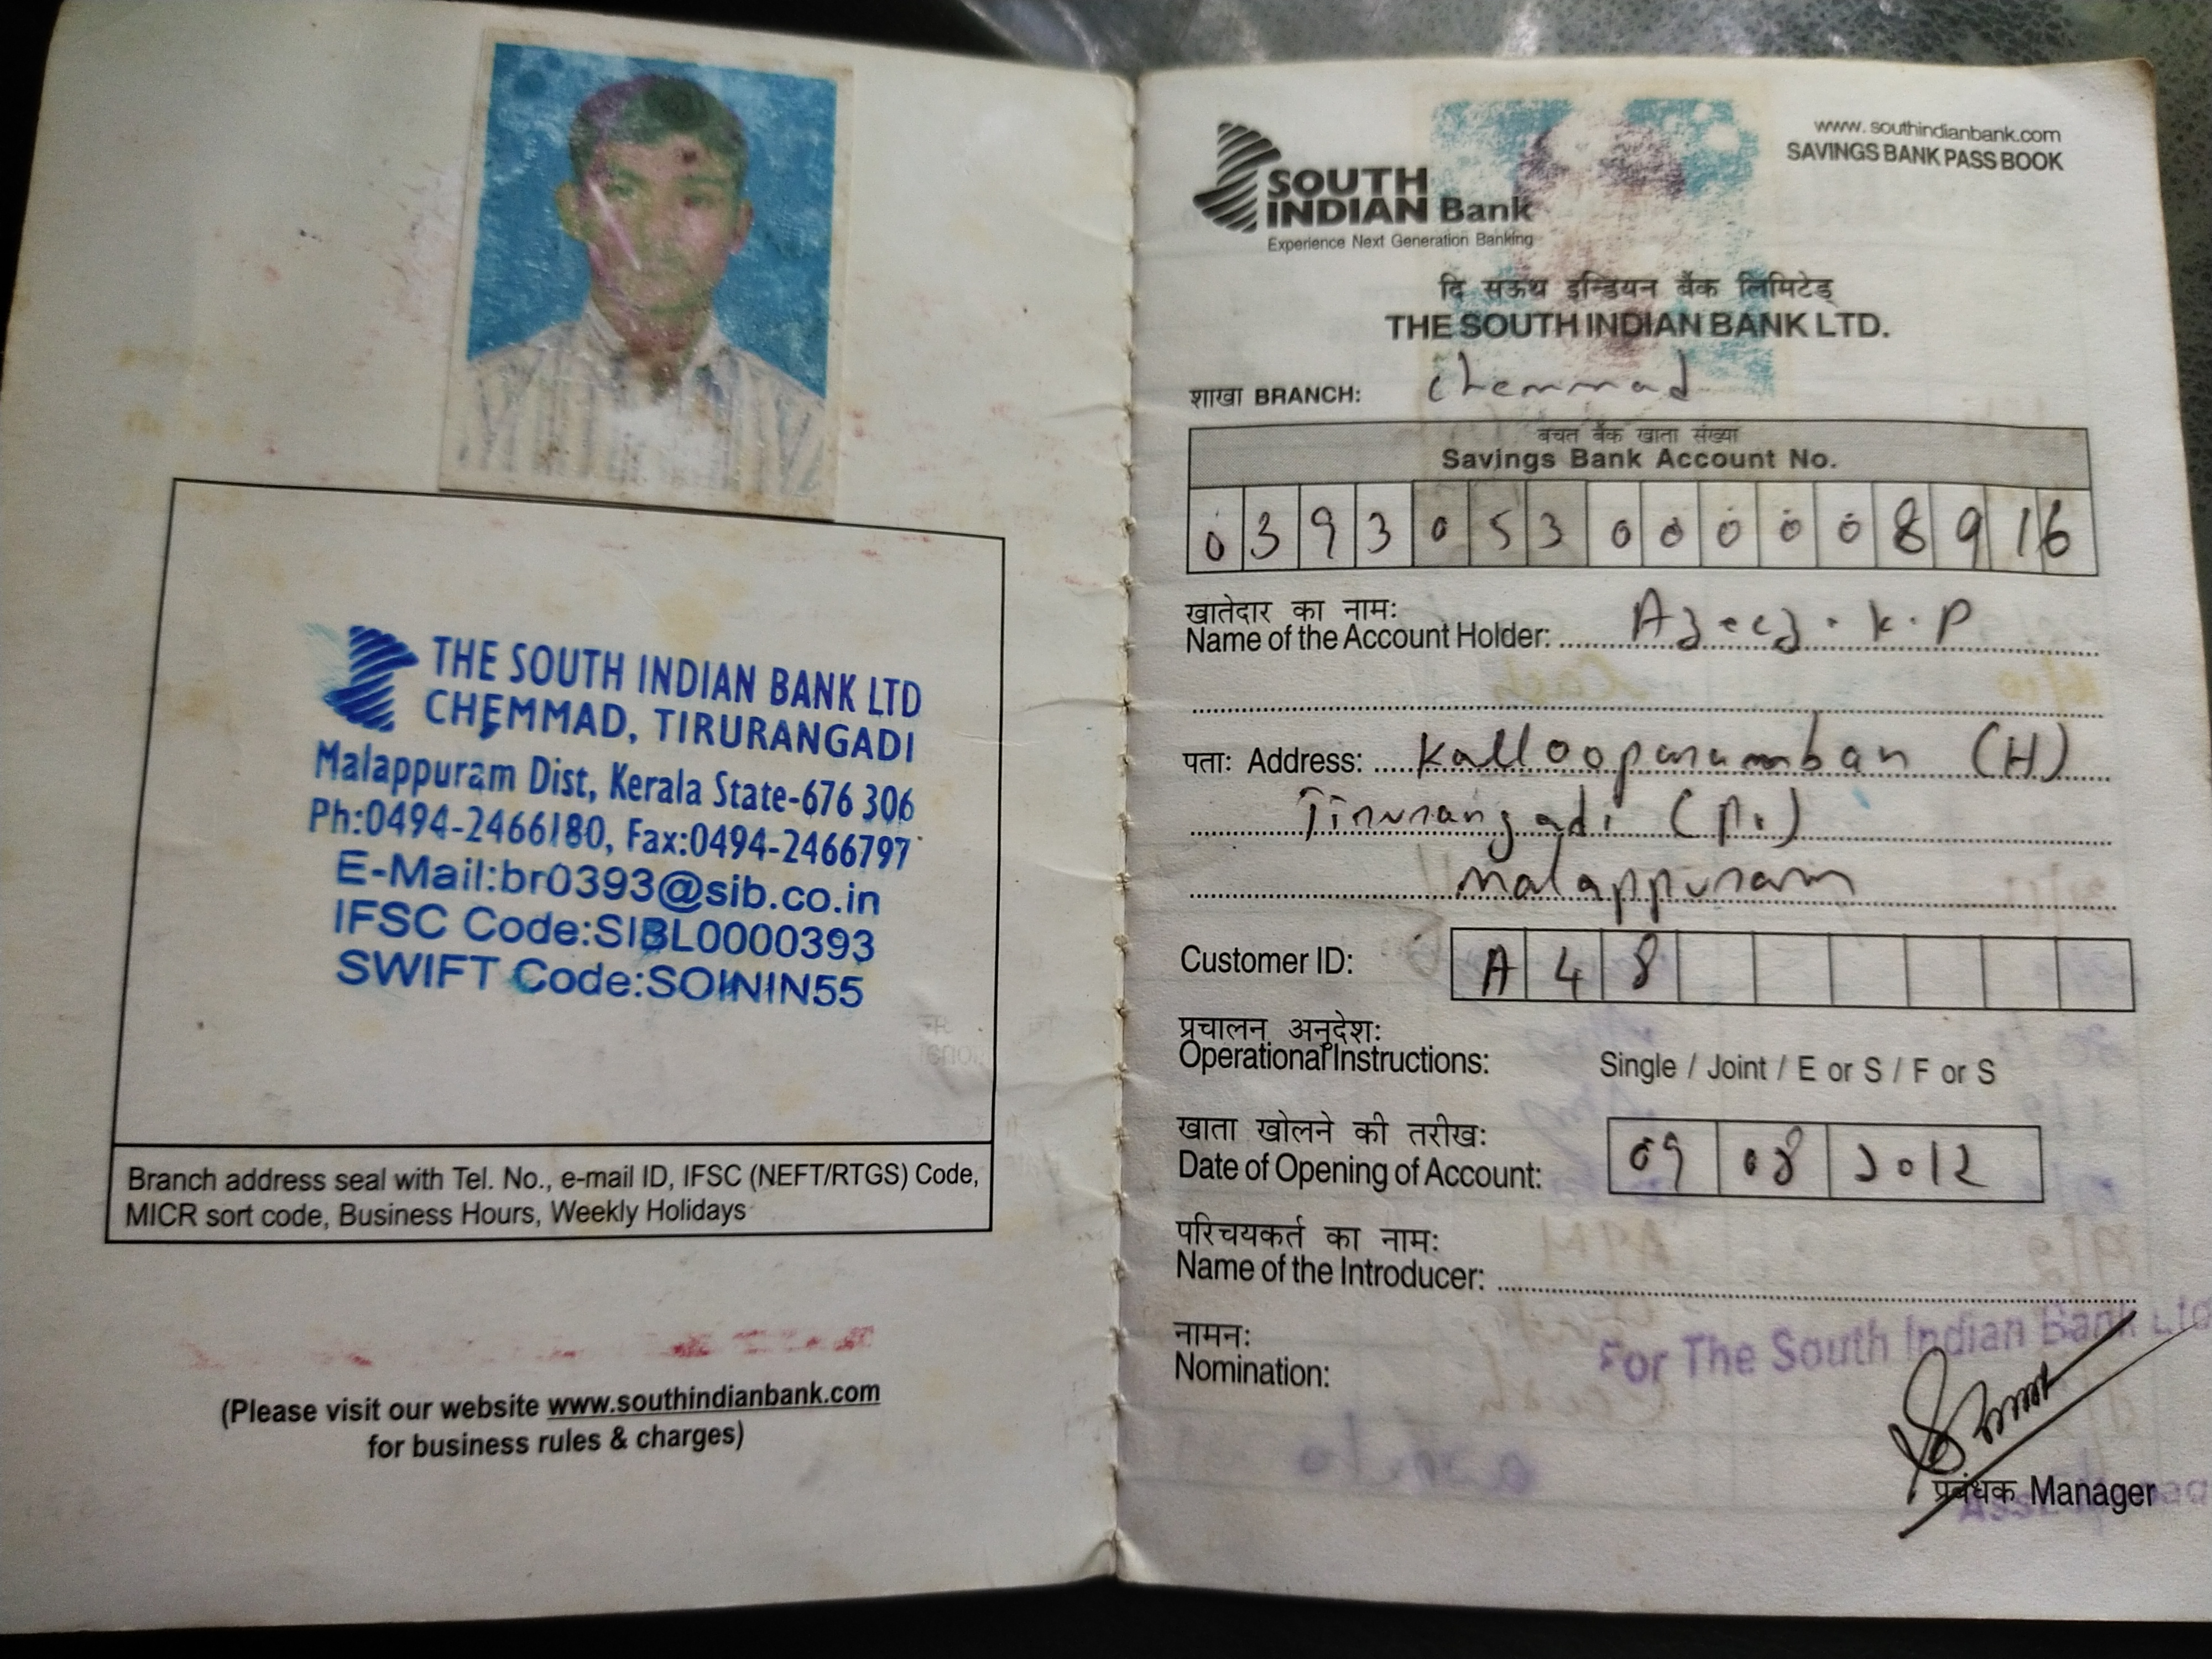 THE SOUTH INDIAN BANK LTD
CHEMMAD, TIRURANGADI
Malappuram Dist, Kerala State-676 306
Ph:0494-2466180, Fax:0494-2466797
E-Mail:br0393@sib.co.in
IFSC Code:SIBL0000393
SWIFT Code:SOININ55
Branch address seal with Tel. No., e-mail ID, IFSC (NEFT/RTGS) Code,
MICR sort code, Business Hours, Weekly Holidays
(Please visit our website www.southindianbank.com
for business rules & charges)
www.southindianbank.com
SAVINGS BANK PASS BOOK
SOUTH
INDIAN Bank
Experience Next Generation Banking
दि सऊथ इन्डियन बैंक लिमिटेड्
THE SOUTH INDIAN BANK LTD.
शाखा BRANCH: Chemmad
बचत बैंक खाता संख्या
Savings Bank Account No.
0393053000008916
खातेदार का नामः
Name of the Account Holder: Azeez. K. P
पताः Address: Kallooparamban (H)
Tirurangadi (Po)
Malappuram
Customer ID: A48
प्रचालन अनुदेशः
Operational Instructions: Single / Joint / E or S / F or S
खाता खोलने की तरीखः
Date of Opening of Account: 09 08 2012
परिचयकर्त का नामः
Name of the Introducer:
नामनः
Nomination:
For The South Indian Bank Ltd
प्रबंधक Manager